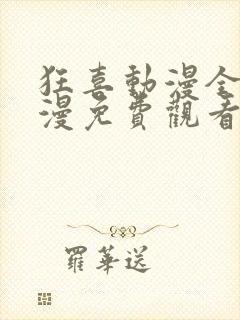 狂喜動漫全
漫免費觀看
羅華送